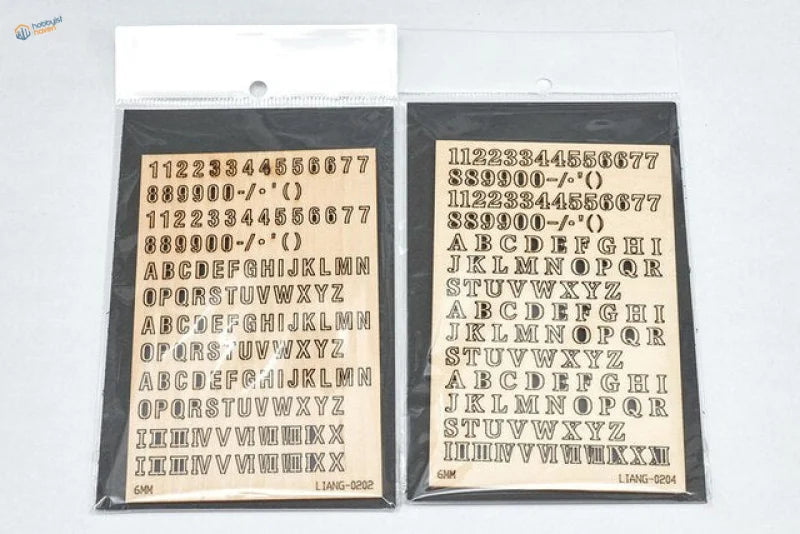 hobbyist
haven
11223344556677
889900-/·'()
11223344556677
889900-/·'()
ABCDEFGHIJKLMN
OPQRSTUVWXYZ
ABCDEFGHIJKLMN
OPQRSTUVWXYZ
ABCDEFGHIJKLMN
OPQRSTUVWXYZ
I II III IV V VI VII VIII IX X
I II III IV V VI VII VIII IX X
6MM LIANG-0202
11223344556677
889900-/·'()
11223344556677
889900-/·'()
ABCDEFGHI
JKLMNOPQR
STUVWXYZ
ABCDEFGHI
JKLMNOPQR
STUVWXYZ
ABCDEFGHI
JKLMNOPQR
STUVWXYZ
I II III IV V VI VII VIII IX X XI
6MM LIANG-0204